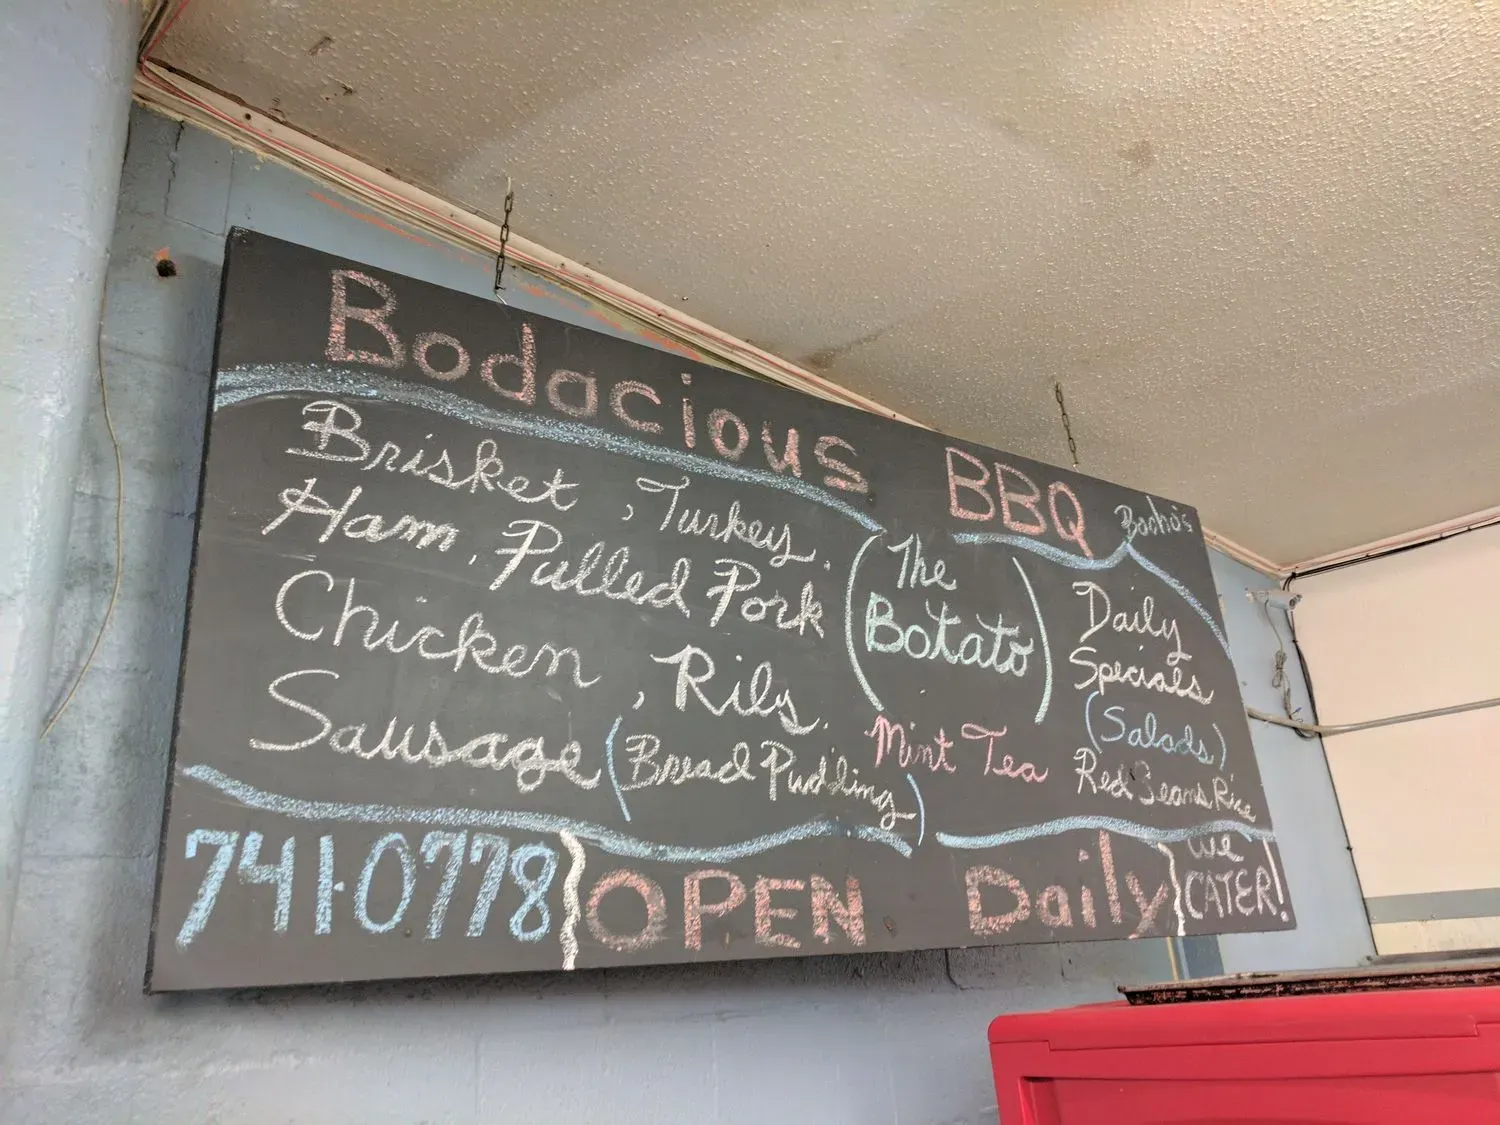 Bodacious BBQ
Brisket, Turkey,
Ham, Pulled Pork
Chicken, Ribs,
Sausage (Bread Pudding)
(The
Botato)
Mint Tea
Daily
Specials
(Salads)
Red Beans Rice
741-0778
OPEN Daily
We
CATER!